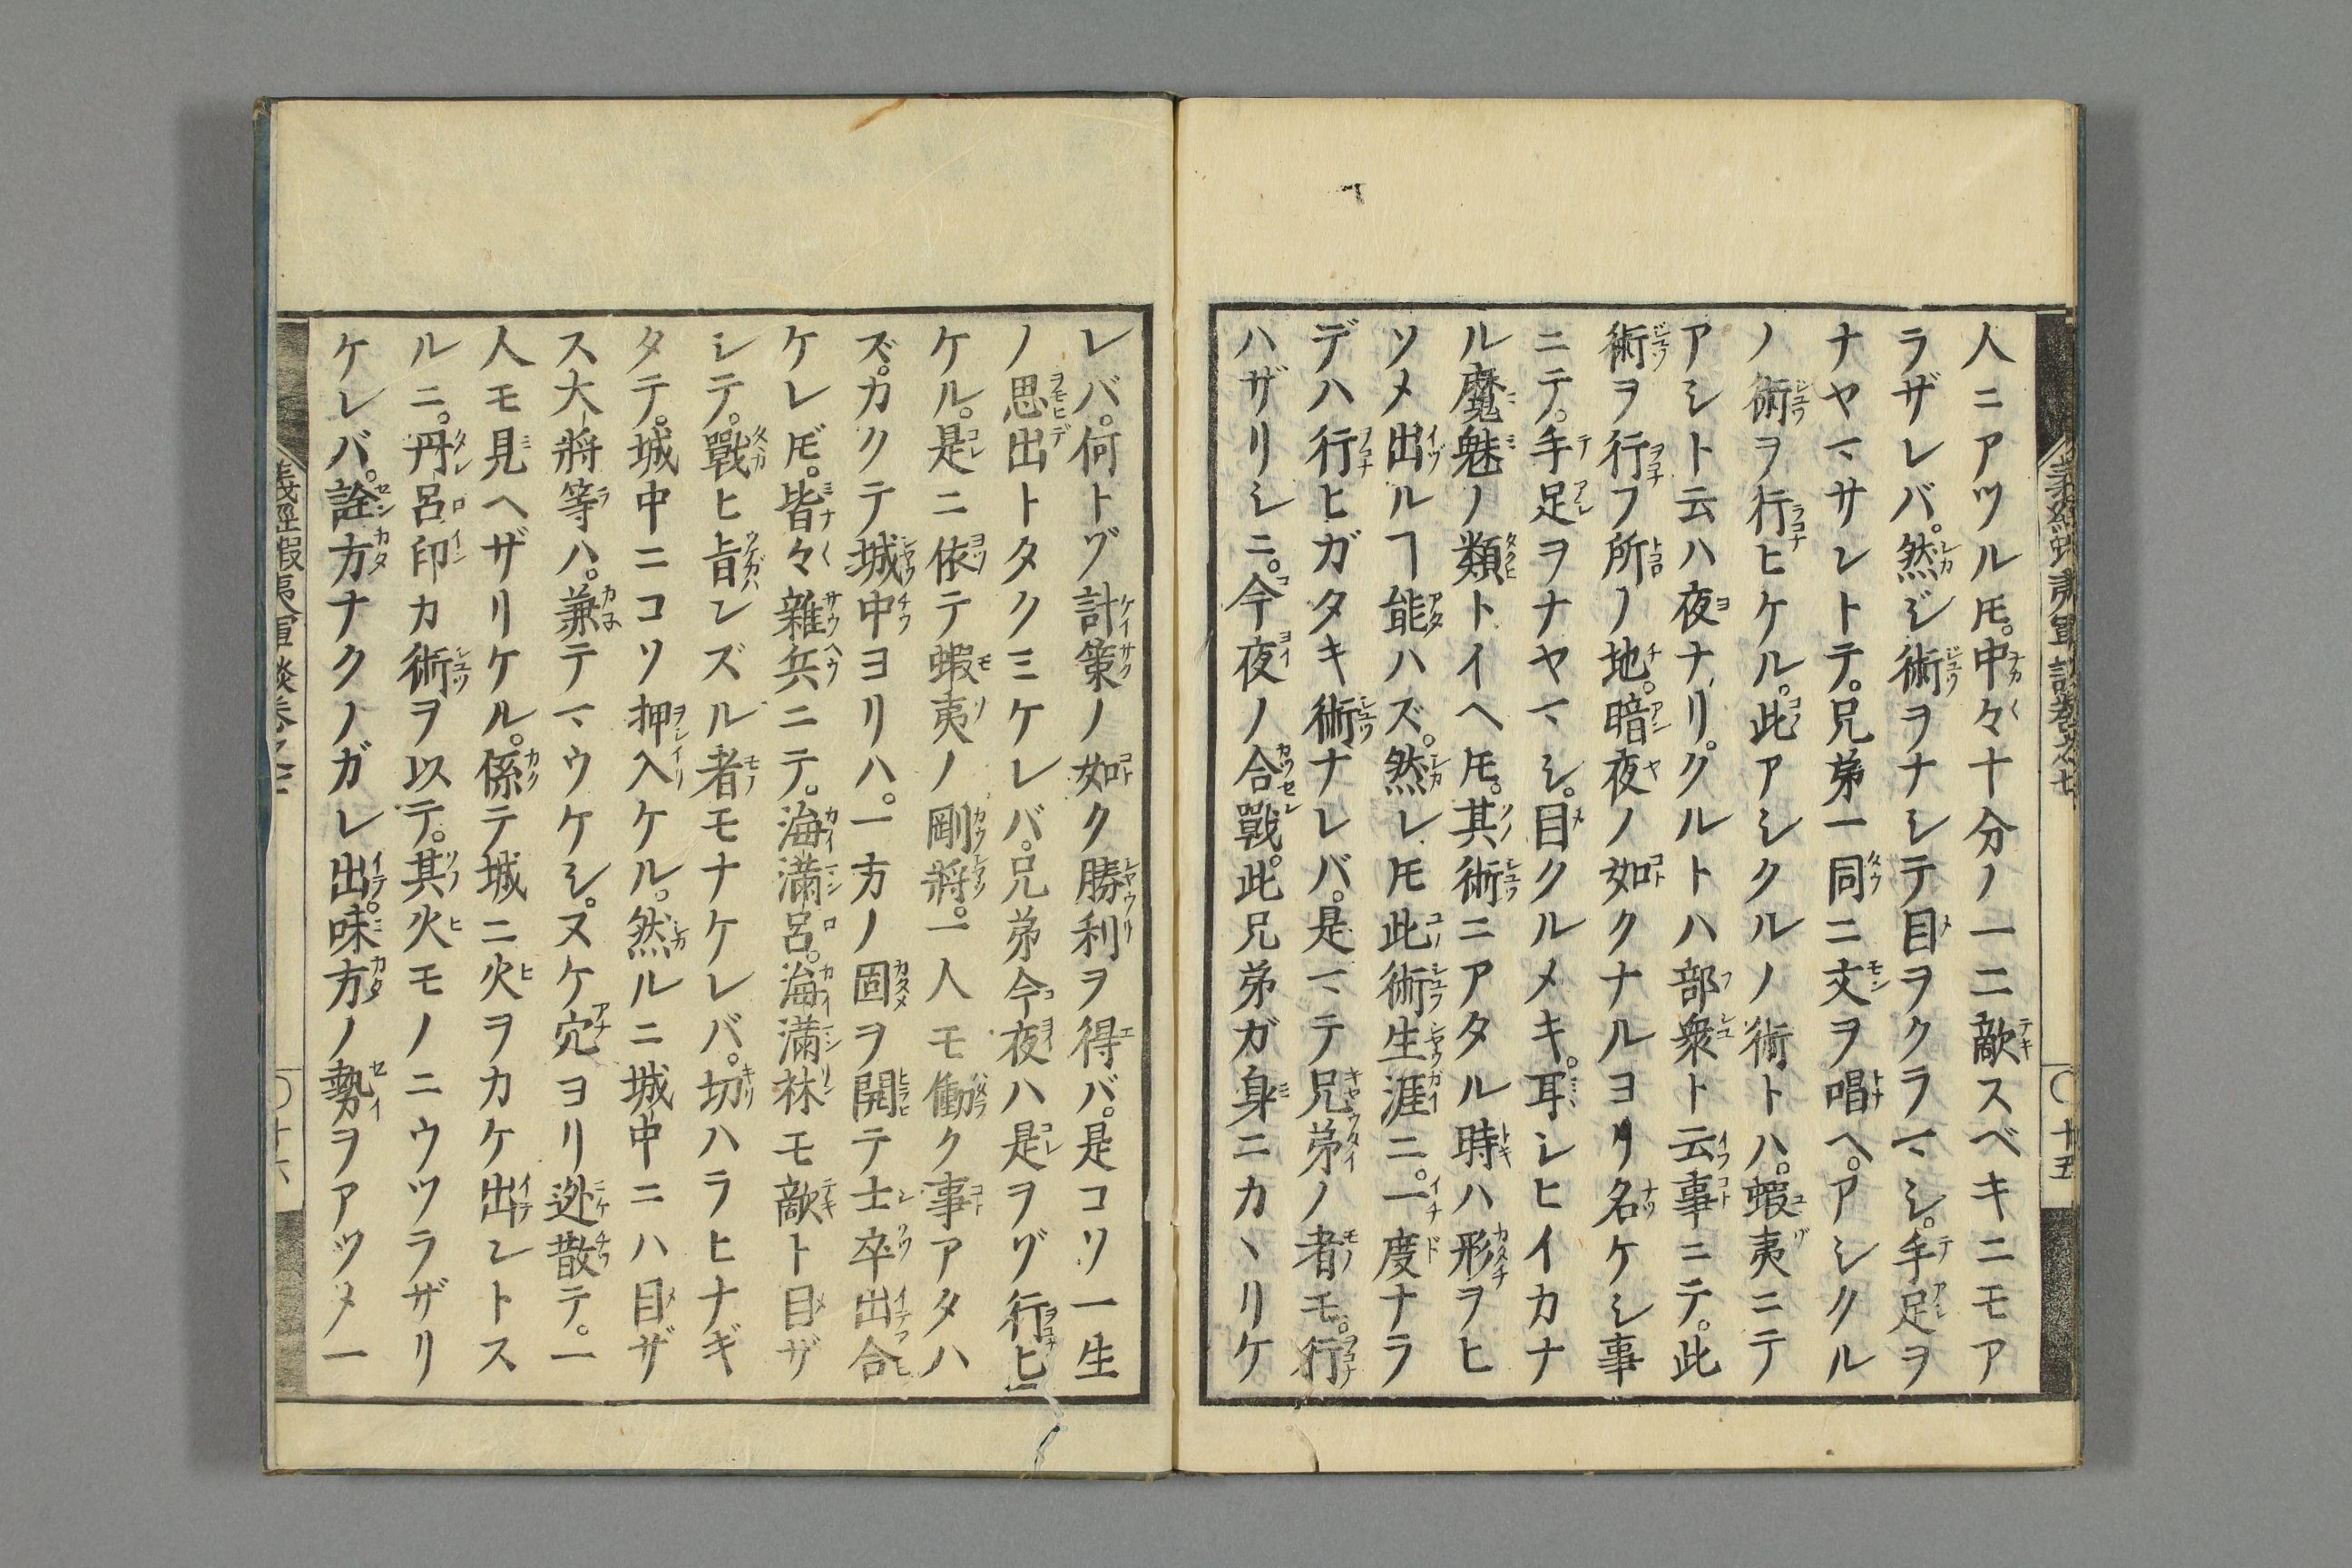 人ニアツルヿモ。中々十分ノ一二敵スベキニモア
ラザレバ。然ジ術ヲナシテ目ヲクラマシ。手足ヲ
ナヤマサレトテ。兄弟一同ニ文ヲ唱ヘ。アシクル
ノ術ヲ行ヒケル。此アシクルノ術トハ。蝦夷ニテ
アシト云ハ夜ナリ。クルトハ部衆ト云事ニテ。此
術ヲ行フ所ノ地。暗夜ノ如クナルヨリ名ケシ事
ニテ。手足ヲナヤマシ。目クルメキ。耳シヒイカナ
ル魔魅ノ類トイヘ𪜈。其術ニアタル時ハ形ヲヒ
ソメ出ルヿ能ハズ。然レ𪜈此術生涯ニ。一度ナラ
デハ行ヒガタキ術ナレバ。是マテ兄弟ノ者モ。行
ハザリシニ。今夜ノ合戰。此兄弟ガ身ニカヽリケ
義經蝦夷軍談卷之七
〇十五
レバ。何トゾ計策ノ如ク勝利ヲ得バ。是コソ一生
ノ思出トタクミケレバ。兄弟今夜ハ是ヲゾ行ヒ
ケル。是ニ依テ蝦夷ノ剛將。一人モ働ク事アタハ
ズ。カクテ城中ヨリハ。一方ノ固ヲ開テ士卒出合
ケレ𪜈。皆々雜兵ニテ。海満呂。海満林モ敵ト目ザ
シテ。戰ヒ肯ンズル者モナケレバ。切ハラヒナギ
タテ。城中ニコソ押入ケル。然ルニ城中ニハ目ザ
ス大將等ハ。兼テマウケシ。ヌケ穴ヨリ迯散テ。一
人モ見ヘザリケル。係テ城ニ火ヲカケ出ントス
ルニ。丹呂印カ術ヲ以テ。其火モノニウツラザリ
ケレバ。詮方ナクノガレ出。味方ノ勢ヲアツメ一
義經蝦夷軍談卷之七
〇十六